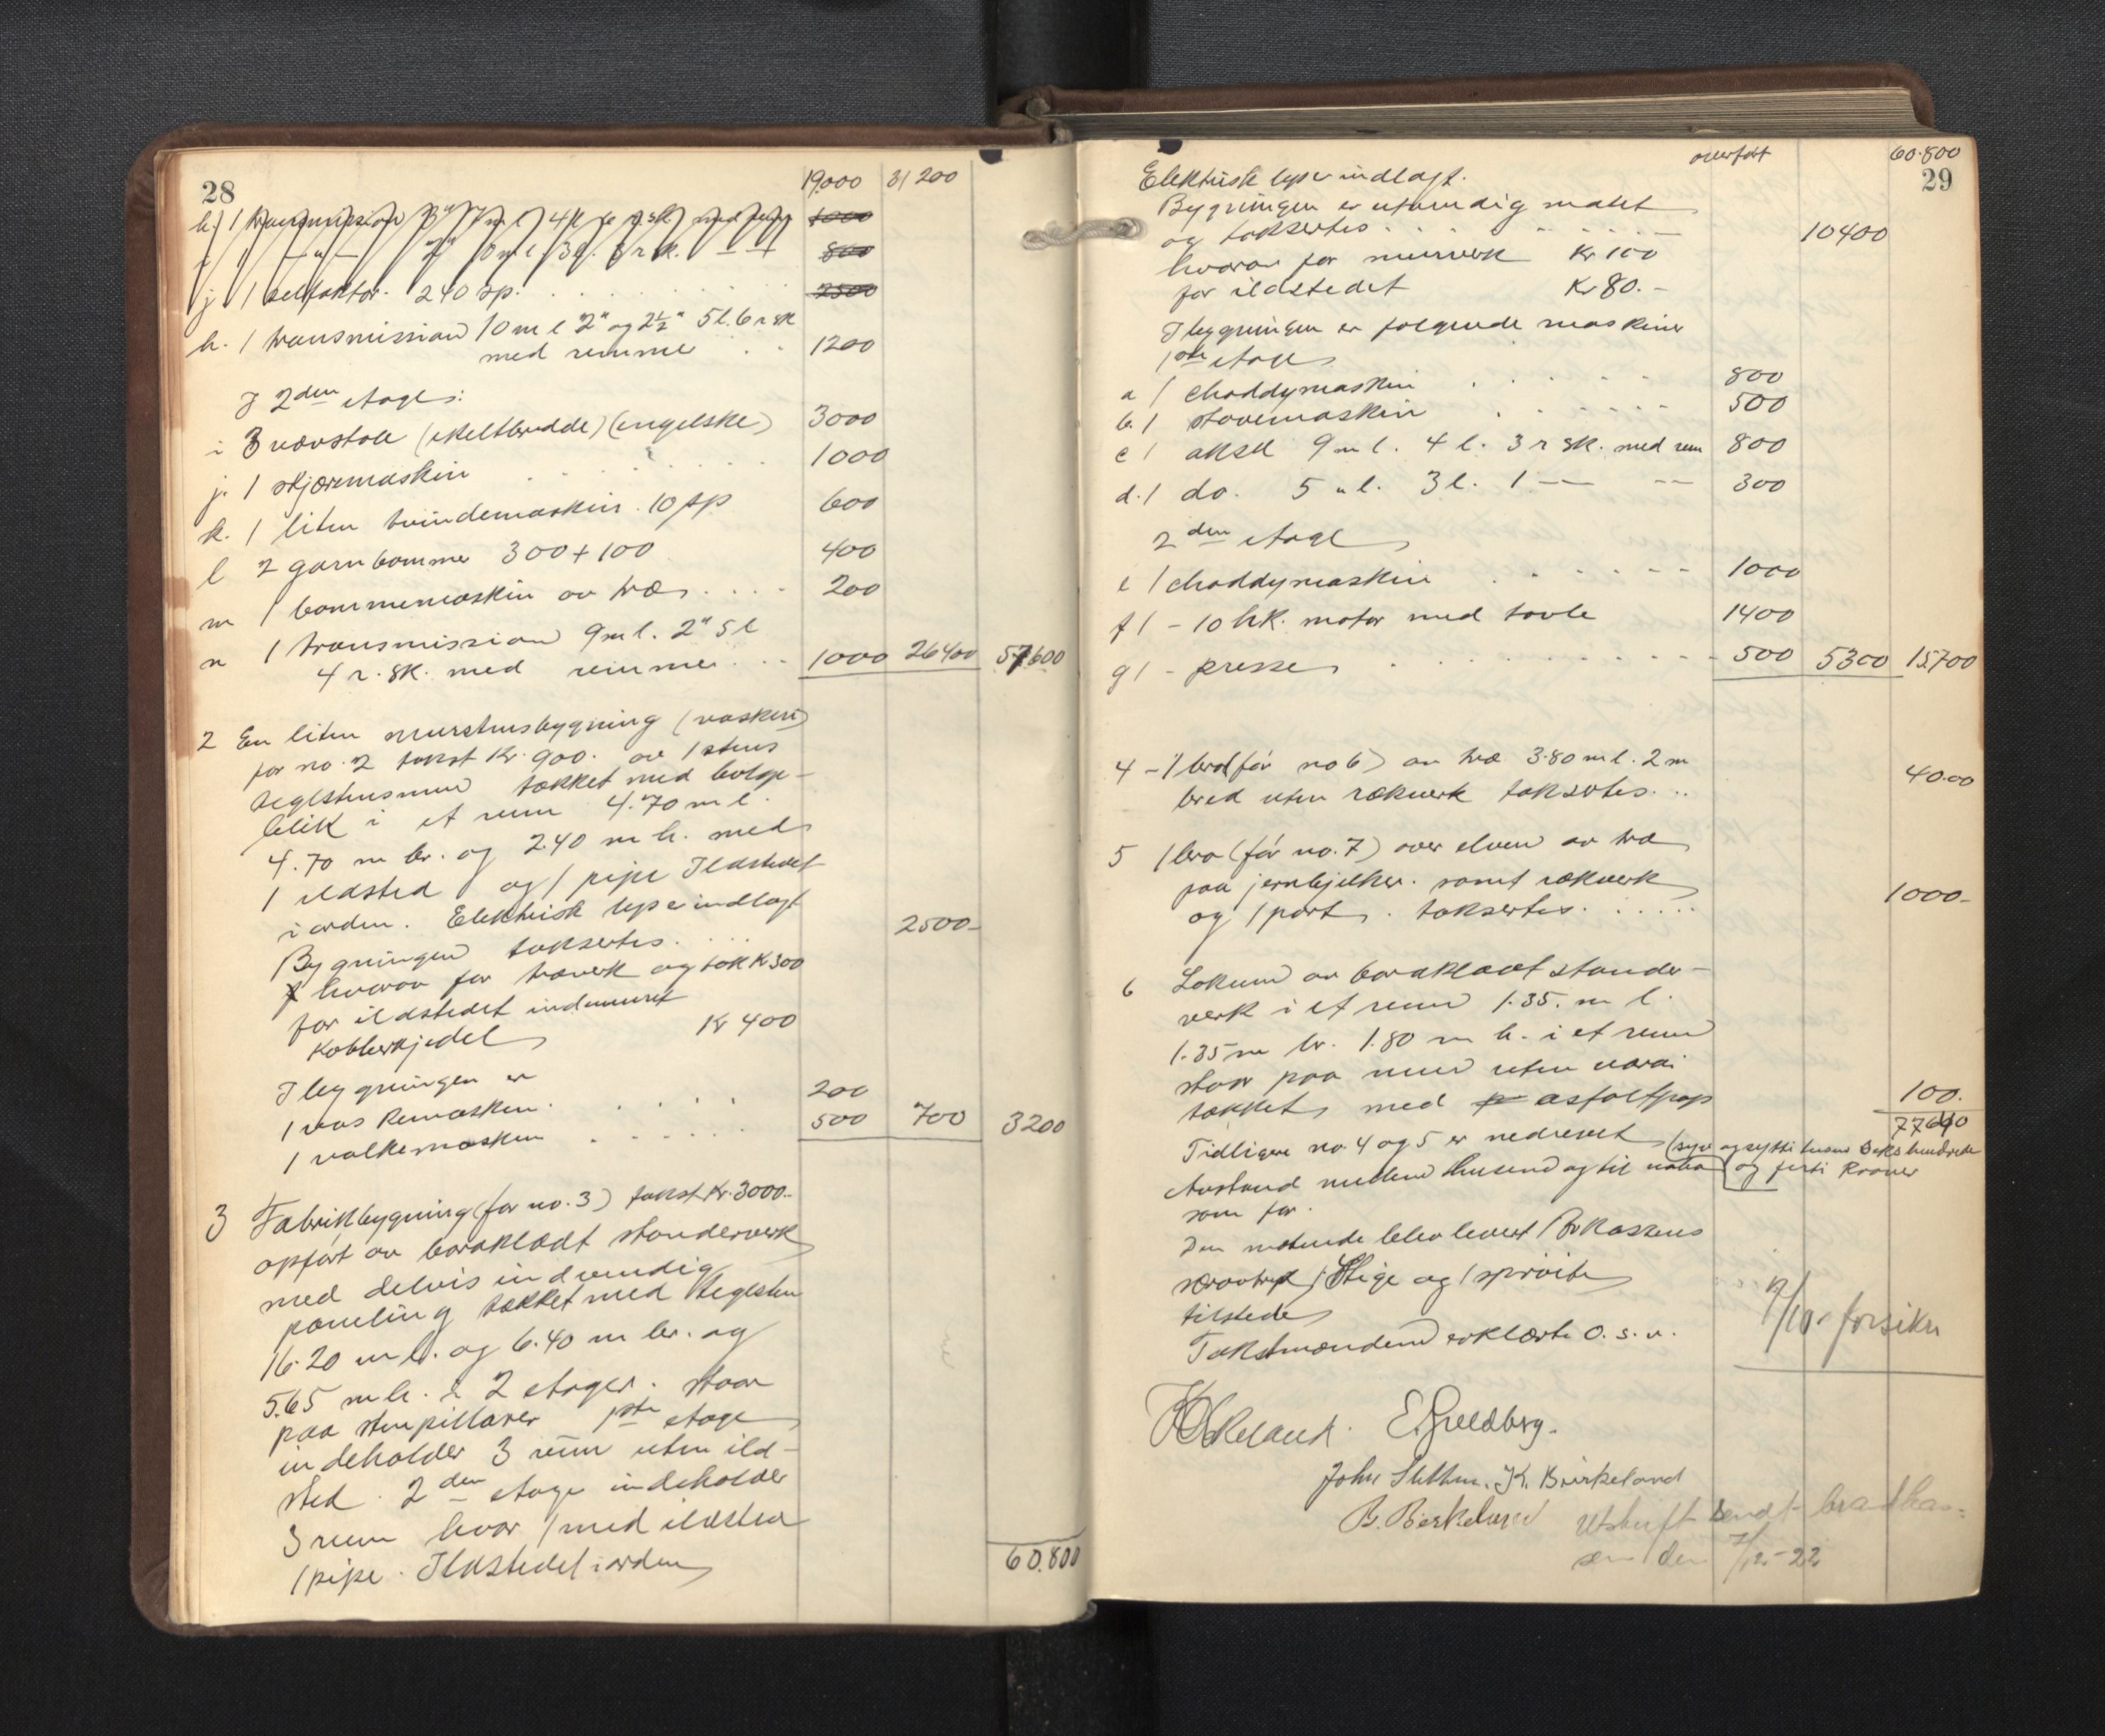 28
19000 31200
h. 1 transmission 4 l. 6 r.sk. med 1000
i 1 — " — 2" 3 l. 3 r.sk. — — 800
j 1 selfaktor. 240 sp. 2500
h. 1 transmission 10 m l 2" og 2½" 5 l. 6 r sk
med remmer . . 1200
I 2den etage:
i 3 vævstole (ekeltbredde) (engelske) 3000
j. 1 skjæremaskin 1000
k. 1 liten tvindemaskin. 10 sp 600
l 2 garnbommer 300 + 100 400
m 1 bommemaskin av træ . . . . 200
n 1 transmission 9 m l. 2" 5 l
4 r. sk. med remmer . . . 1000 26400 57600
2 En liten murstensbygning (vaskeri)
før no. 2 takst Kr. 900. av 1 stens
teglstensmur tækket med bølge-
blik i et rum 4.70 m l.
4.70 m br. og 2.40 m h. med
1 ildsted og 1 pipe Ildstedet
i orden. Elektrisk lys er indlagt
Bygningen taksertes. . . . 2500-
hvorav for træverk og tak K 300
for ildstedet indemuret
Kobberkjedel Kr 400
I bygningen er
1 vaskemaskin . . . . . 200
1 valkemaskin . . . . . 500 700 3200
3 Fabrikbygning (før no. 3) takst Kr. 3000.-
opført av bordklædt standerverk
med delvis indvendig
paneling tækket med teglsten
16.20 m l. og 6.40 m br. og
5.65 m h. i 2 etager. staar
paa stenpillarer 1ste etage
indeholder 3 rum uten ild-
sted. 2den etage indeholder
3 rum hvor 1 med ildsted
1 pipe. Ildstedet i orden
60.800
overført 60.800
29
Elektrisk lys er indlagt.
Bygningen er utvendig malet
og taksertes . . . . . . . 10400
hvorav for murverk Kr 100
for ildstedet Kr 80.-
I bygningen er følgende maskiner
1ste etage
a 1 choddymaskin . . . . . 800
b. 1 støvemaskin . . . . . 500
c 1 aksel 9 m l. 4 l. 3 r sk. med rem 800
d. 1 do. 5 " l. 3 l. 1 — — 300
2den etage
e 1 choddymaskin . . . . . 1000
f 1 - 10 hk. motor med tavle 1400
g 1 - presse . . . . . . 500 5300 15.700
4 - 1 bro (før no 6) av træ 3.80 m l. 2 m
bred uten rækverk taksertes. .. 40.00
5 1 bro (før no. 7) over elven av træ
paa jernbjelker. samt rækverk
og 1 port. taksertes. . . . . . 1000-
6 Lokum av bordklædt stander-
verk i et rum 1.35. m l.
1.35 m br. 1.80 m h. i et rum
staar paa mur uten
tækket med asfaltpap 100.
77640
Tidligere no. 4 og 5 er nedrevet (syv og sytti tusen seks hundrede
Avstand mellem husene og til nabo og førti Kroner
som før.
Den møtende blev levert Brkassens
særavtryk, 1 Stige og 1 sprøite
tilstede
Takstmændene erklærte o. s. v.
forsikr
E. Guldberg.
K. Birkeland
Utskrift sendt brandkas-
sen den 7/12-22